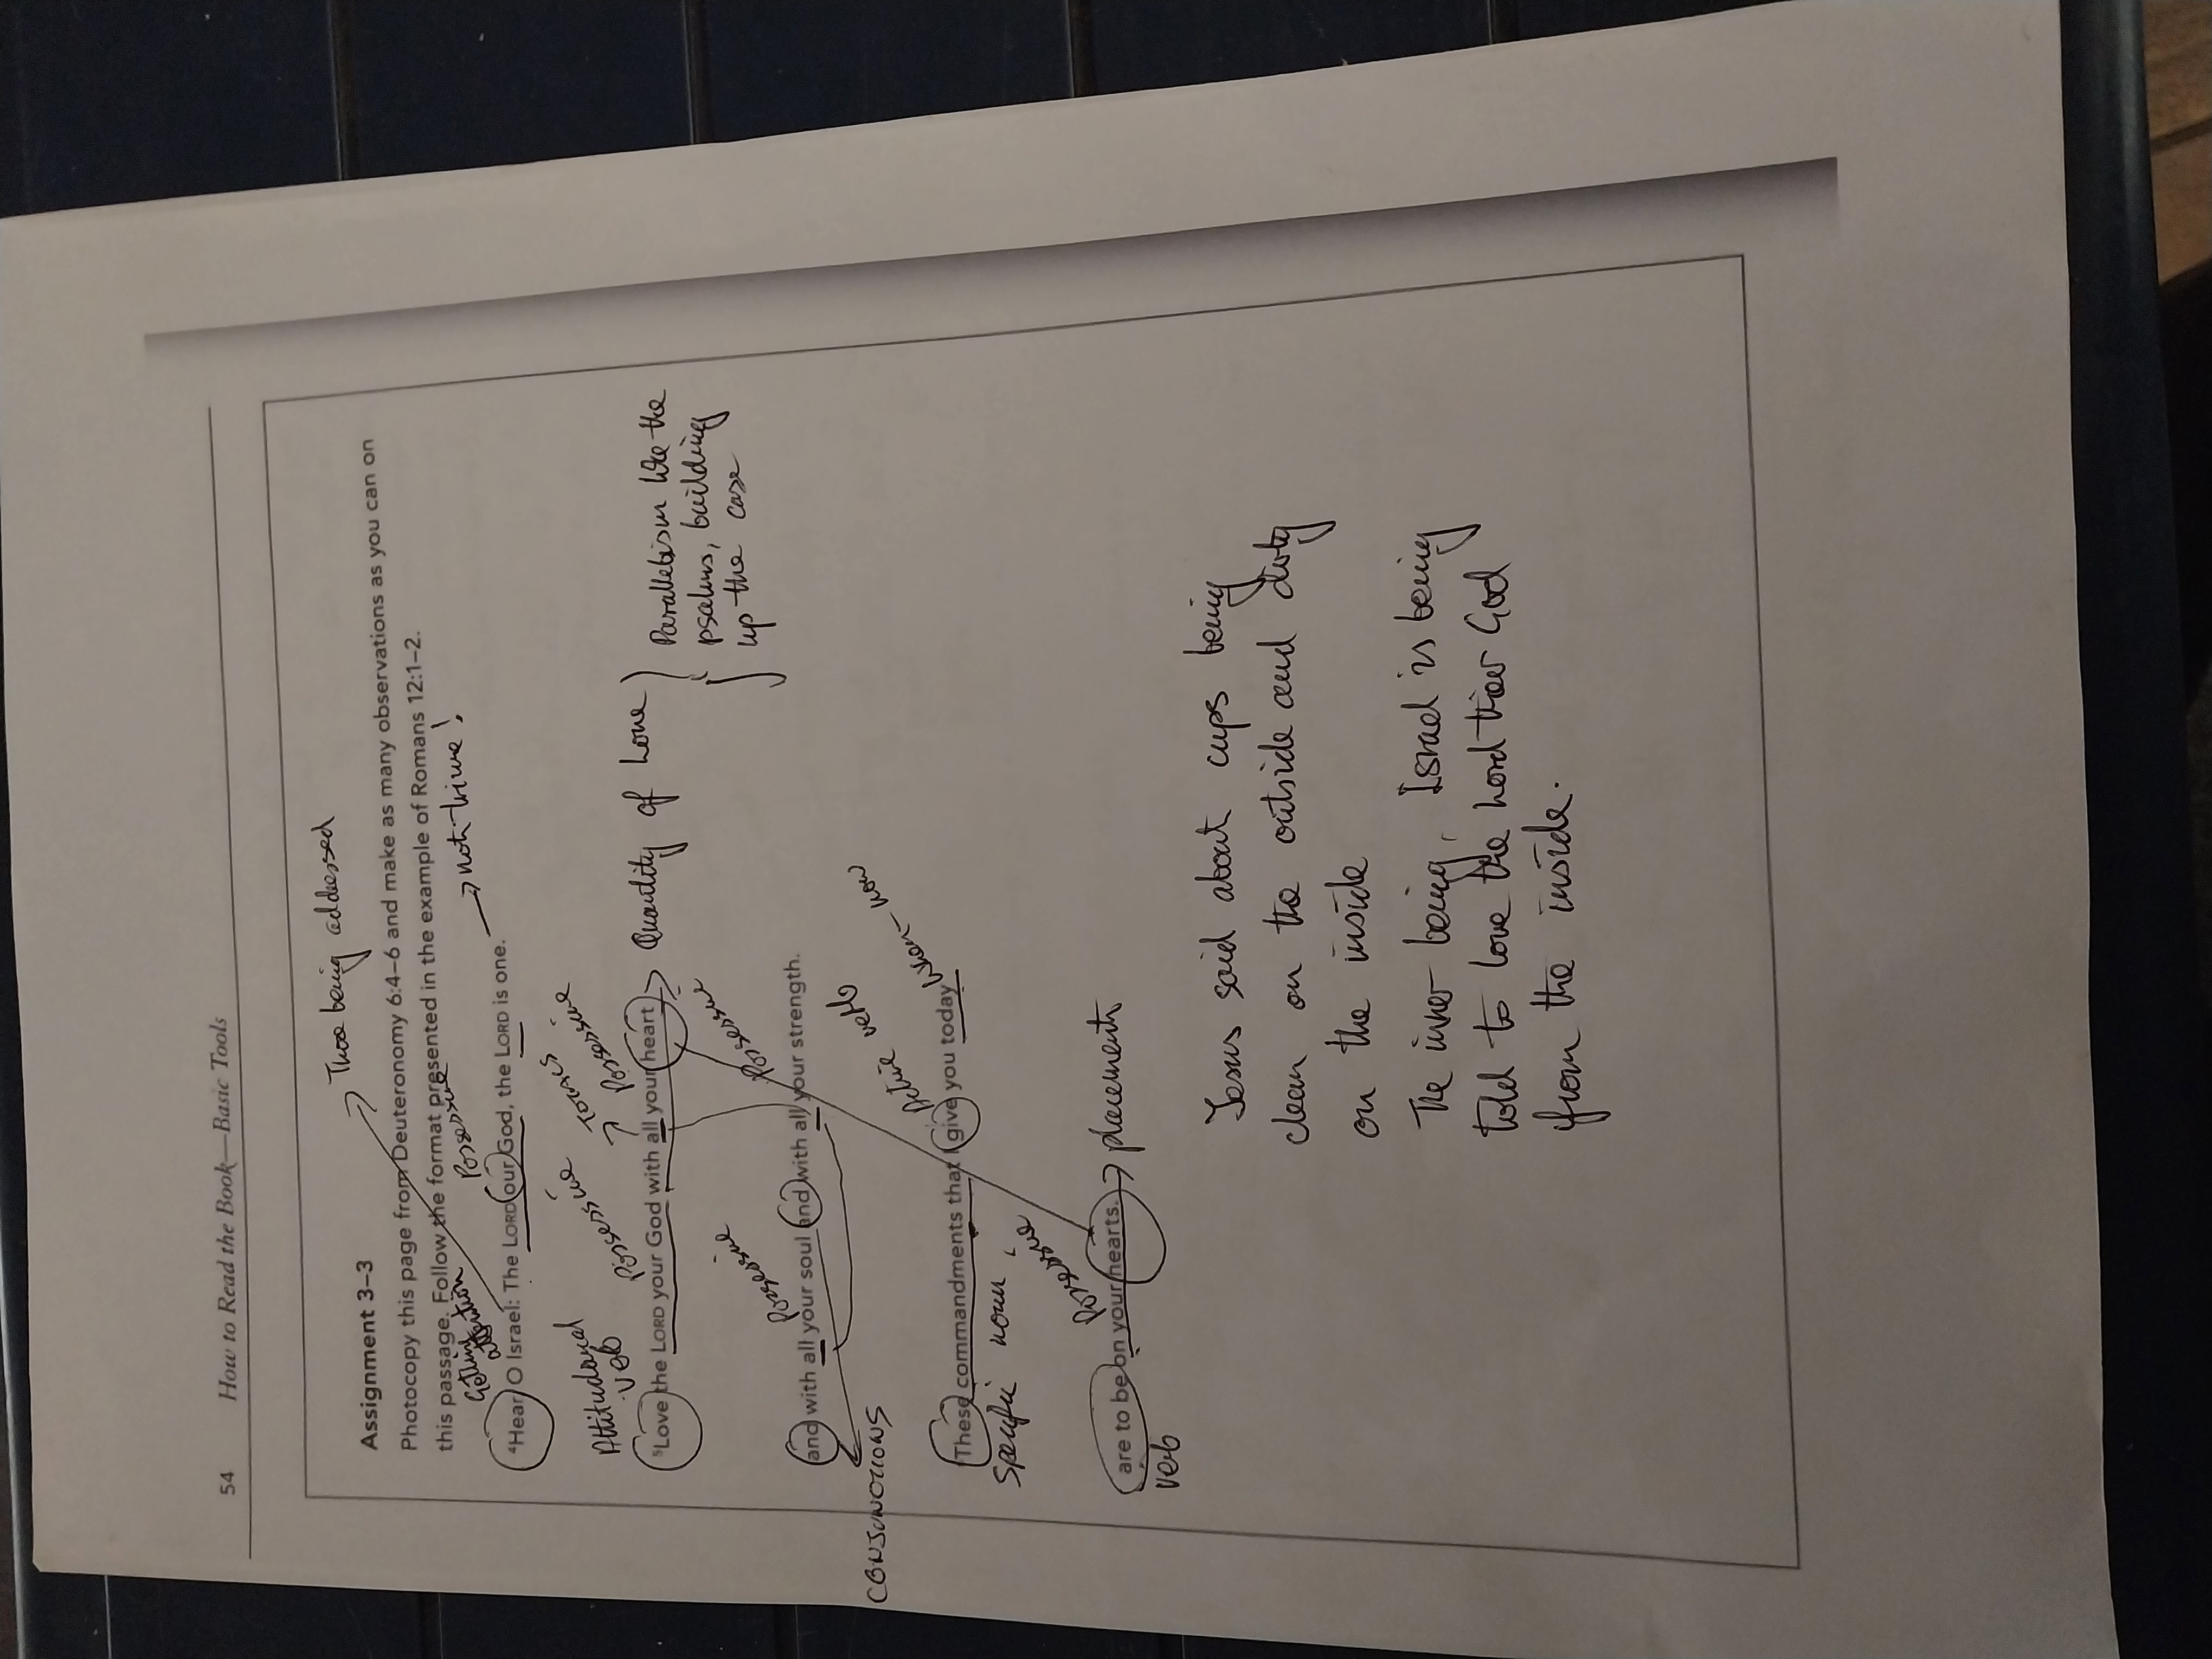 54 How to Read the Book—Basic Tools
Those being addressed
Assignment 3–3
Photocopy this page from Deuteronomy 6:4–6 and make as many observations as you can on
this passage. Follow the format presented in the example of Romans 12:1–2.
Getting attention
Possessive
→ not triune!
⁴Hear, O Israel: The LORD our God, the LORD is one.
Attitudinal
verb
Possessive
Possessive
⁵Love the LORD your God with all your heart → Quantity of Love } Parallelism like the
psalms, building
up the case
Possessive
Possessive
and with all your soul and with all your strength.
CONJUNCTIONS
Active verb
now
These commandments that I give you today
Specific noun
Possessive
are to be on your hearts. → placement
verb
Jesus said about cups being
clean on the outside and dirty
on the inside
The inner being, Israel is being
told to love the Lord their God
from the inside.